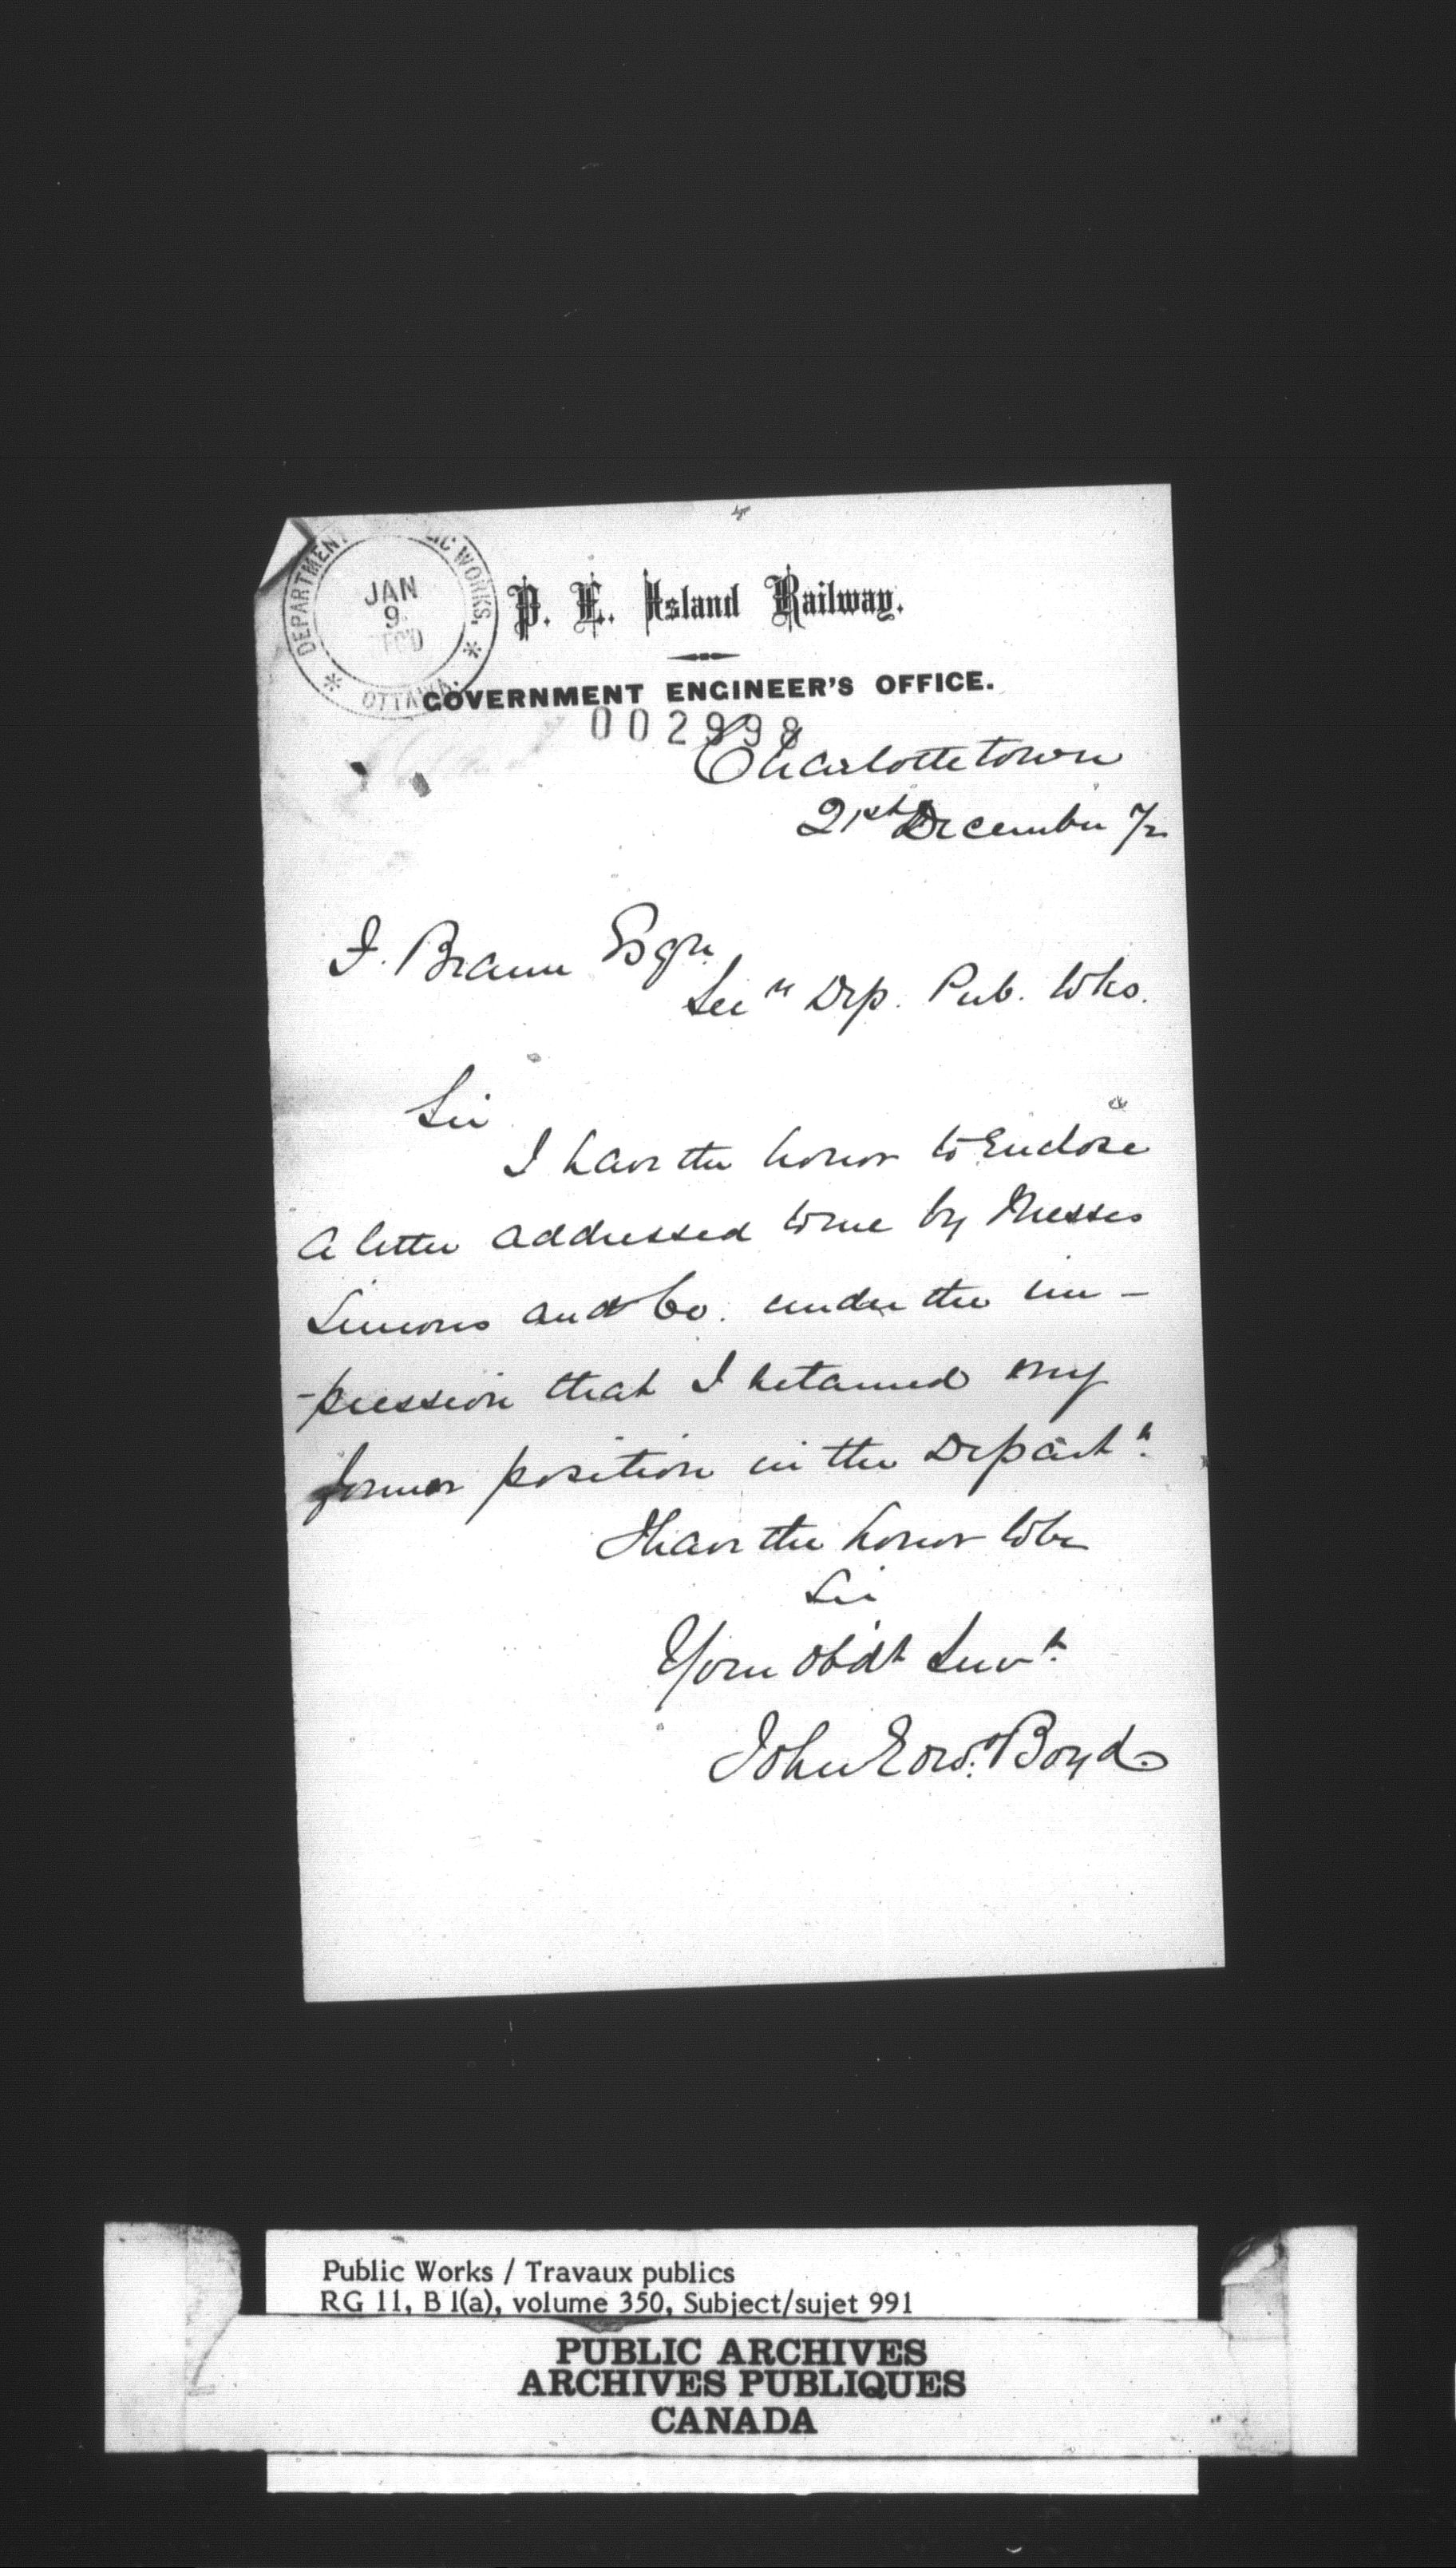 DEPARTMENT
IC WORKS,
JAN
9
OTTAWA.
P. E. Island Railway.
GOVERNMENT ENGINEER'S OFFICE.
002998
Charlottetown
21st December 72
F. Braun Esqre
Secry Dep. Pub. Wks.
Sir
I have the honor to Enclose
a letter addressed to me by Messrs
Simons and Co. under the im-
-pression that I retained my
former position in the Departt.
I have the honor to be
Sir
Your obdt Servt.
John Edwd. Boyd
Public Works / Travaux publics
RG 11, B 1(a), volume 350, Subject/sujet 991
PUBLIC ARCHIVES
ARCHIVES PUBLIQUES
CANADA